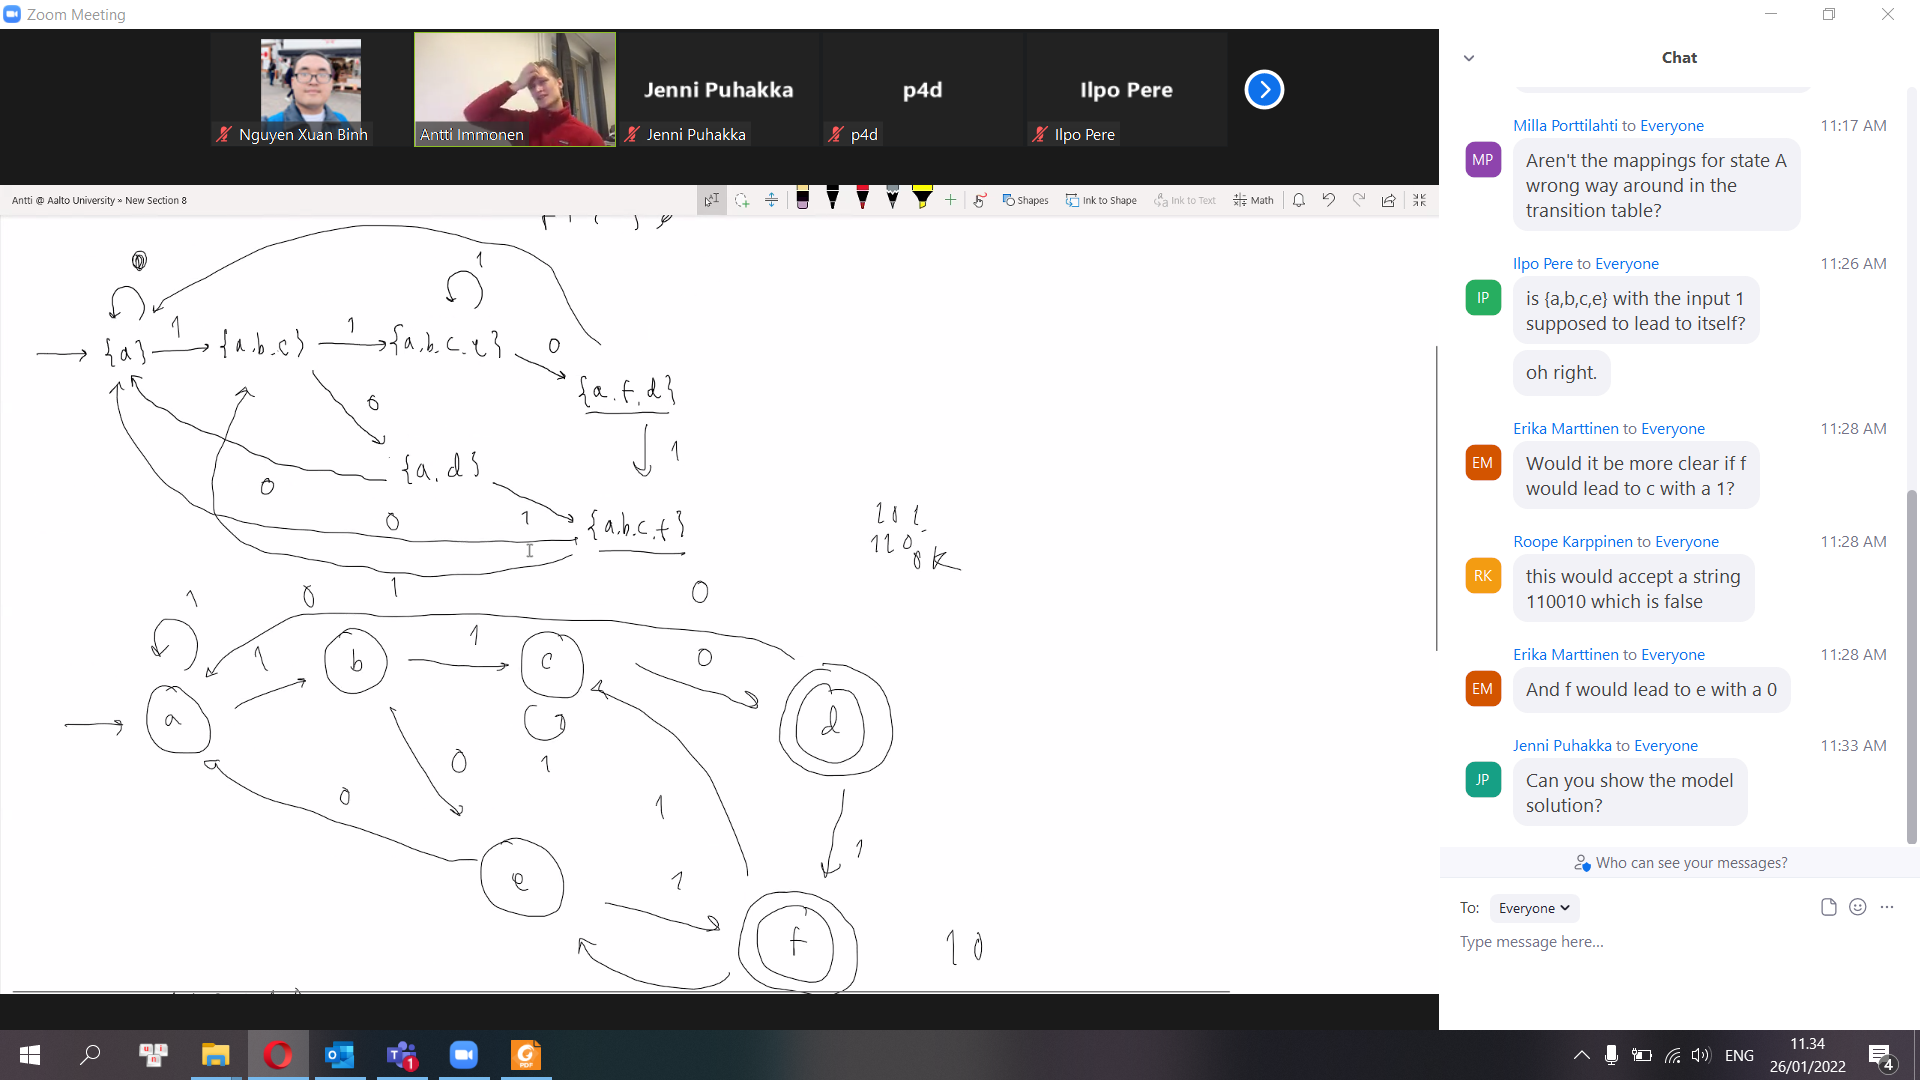 Zoom Meeting
Jenni Puhakka
p4d
Ilpo Pere
Nguyen Xuan Binh
Antti Immonen
Jenni Puhakka
p4d
Ilpo Pere
Antti @ Aalto University » New Section 8
Shapes
Ink to Shape
Ink to Text
Math
1
1
1
{a}
{a,b,c}
{a,b,c,e}
0
{a,f,d}
0
1
{a,d}
0
0
1
{a,b,c,f}
1
101
110
ok
1
0
0
1
b
1
c
0
a
d
0
1
0
1
1
e
1
f
10
Chat
Milla Porttilahti to Everyone
11:17 AM
MP
Aren't the mappings for state A
wrong way around in the
transition table?
Ilpo Pere to Everyone
11:26 AM
IP
is {a,b,c,e} with the input 1
supposed to lead to itself?
oh right.
Erika Marttinen to Everyone
11:28 AM
EM
Would it be more clear if f
would lead to c with a 1?
Roope Karppinen to Everyone
11:28 AM
RK
this would accept a string
110010 which is false
Erika Marttinen to Everyone
11:28 AM
EM
And f would lead to e with a 0
Jenni Puhakka to Everyone
11:33 AM
JP
Can you show the model
solution?
Who can see your messages?
To: Everyone
Type message here...
1
PDF
ENG
11.34
26/01/2022
4